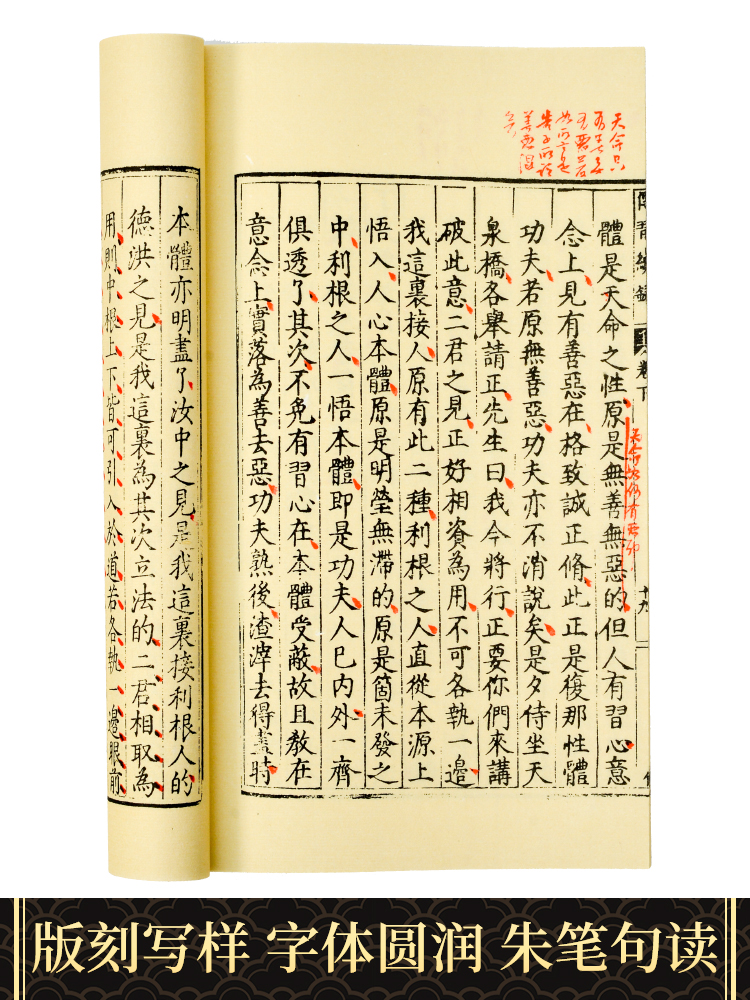 卷下
十九
體是天命之性原是無善無惡的但人有習心意
念上見有善惡在格致誠正脩此正是復那性體
功夫若原無善惡功夫亦不消說矣是夕侍坐天
泉橋各舉請正先生曰我今將行正要你們來講
破此意二君之見正好相資為用不可各執一邊
我這裏接人原有此二種利根之人直從本源上
悟入人心本體原是明瑩無滯的原是箇未發之
中利根之人一悟本體即是功夫人巳內外一齊
俱透了其次不免有習心在本體受蔽故且教在
意念上實落為善去惡功夫熟後渣滓去得盡時
本體亦明盡了汝中之見是我這裏接利根人的
德洪之見是我這裏為其次立法的二君相取為
用則中根上下皆可引入於道若各執一邊眼前
版刻写样 字体圆润 朱笔句读